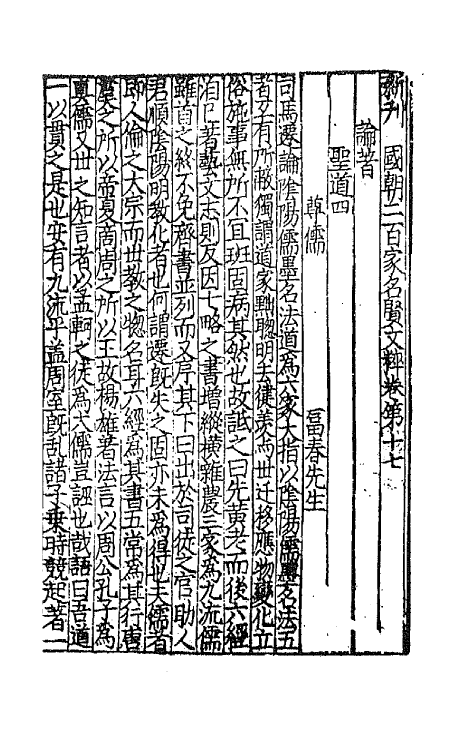 新刊　國朝二百家名賢文粹卷第十七
論著
聖道四
尊儒　富春先生
司馬遷論陰陽儒墨名法道為六家大指以陰陽儒墨名法五
者各有所蔽獨謂道家黜聰明去健羨為世迁移應物變化立
俗施事無所不且班固病其然也故詆之曰先黄老而後六經
洎已著藝文志則反因七略之書增縱横雜農三家為九流儒
雖首之終不免齊書並列而又序其下曰出於司徒之官助人
君順陰陽明教化者也何謂遷既失之固亦未為得也夫儒者
即人倫之大宗而世教之揔名耳六經為其書五常為其行唐
虞之所以帝夏商周之所以王故楊雄著法言以周公孔子為
真儒又世之知言者以孟軻之徒為大儒豈誣也哉語曰吾道
一以貫之是也安有九流乎盖周室既乱諸子乗時競起著一